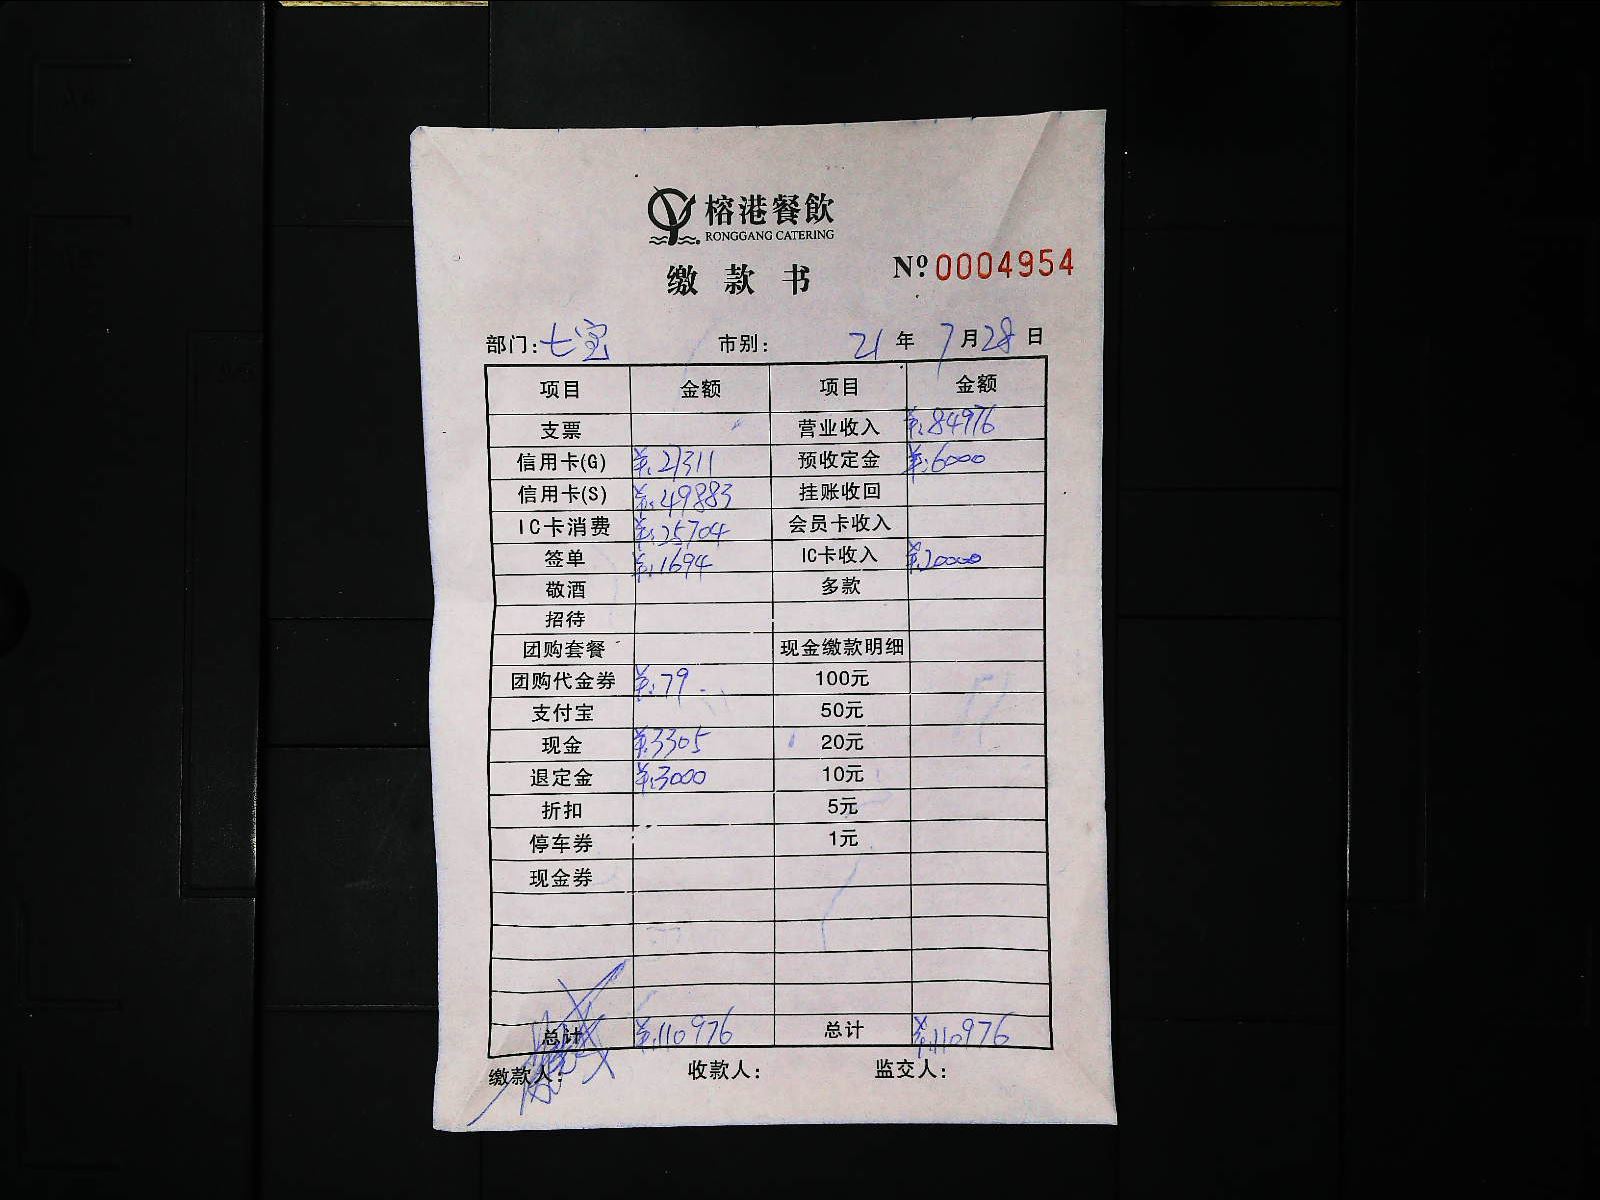 榕港餐飲
RONGGANG CATERING
缴款书 Nº 0004954
部门:七宝 市别: 21年7月28日
项目 金额 项目 金额
支票 营业收入 ¥:84976
信用卡(G) ¥:27311 预收定金 ¥:6000
信用卡(S) ¥:49883 挂账收回
IC卡消费 ¥:25704 会员卡收入
签单 ¥:1694 IC卡收入 ¥:20000
敬酒 多款
招待
团购套餐 现金缴款明细
团购代金券 ¥:79 100元
支付宝 50元
现金 ¥:3305 20元
退定金 ¥:3000 10元
折扣 5元
停车券 1元
现金券
总计 ¥:110976 总计 ¥:110976
缴款人: 收款人: 监交人: